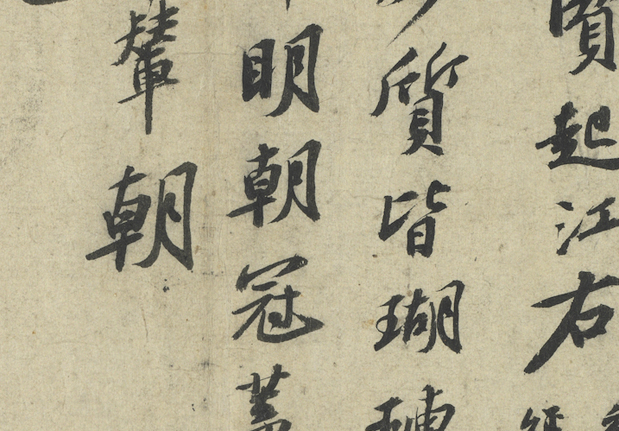 賢起江右
質皆瑚璉
明朝冠蓋
輦朝